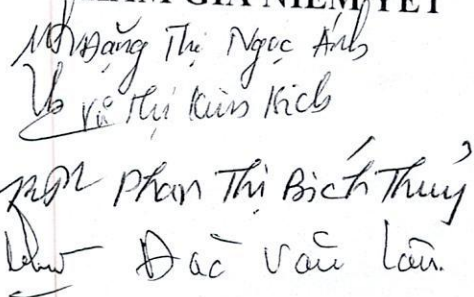 THAM GIA NIÊM YẾT
Đặng Thị Ngọc Ánh
Vũ Thị Kim Kích
Phan Thị Bích Thuỷ
Đắc Văn Lân.